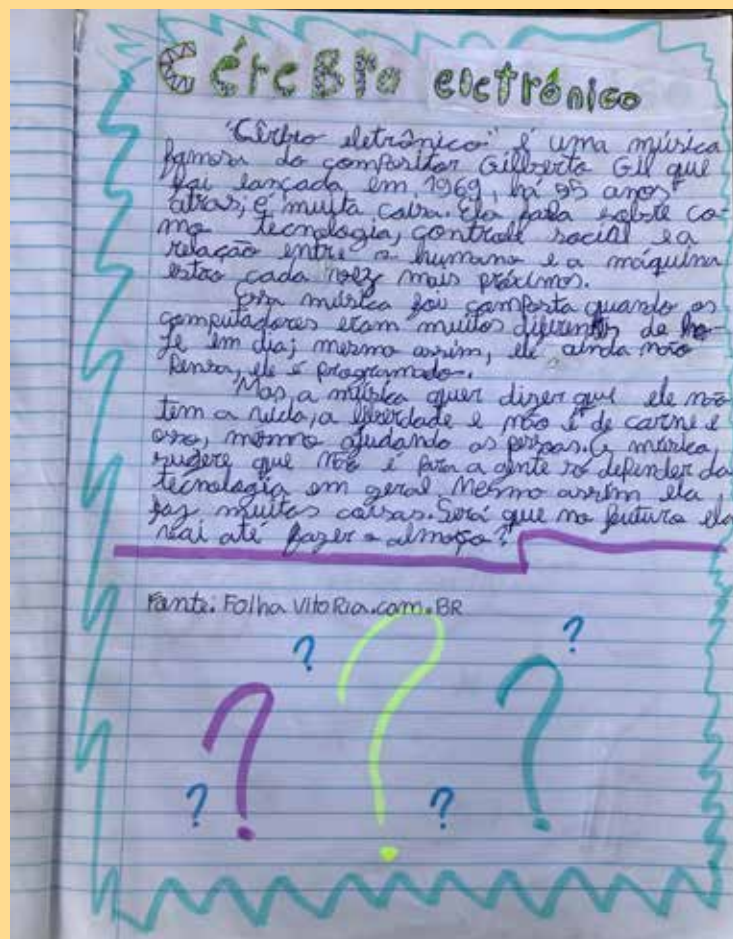 Cérebro eletrônico
"Cérbro eletrônico" é uma música
famosa do compositor Gilberto Gil que
foi lançada em 1969, há 55 anos
atras, é muita coisa. Ela fala sobre co-
mo tecnologia, controle social e a
relação entre o humano e a máquina
estão cada vez mais próximos.
Essa música foi composta quando os
computadores eram muitos diferentes de ho-
je em dia; mesmo assim, ele ainda não
Pensa, ele é programado.
Mas, a música quer dizer que ele não
tem a vida, a liberdade e não é de carne e
osso, mesmo ajudando as pessoas. A música,
sugere que não é para a gente só depender da
tecnologia em geral Mesmo assim ela
faz muitas coisas. Será que no futuro ela
vai até fazer o almoço?
Fonte: Folha VitoRia.com.BR
? ?
? ? ?
? ?